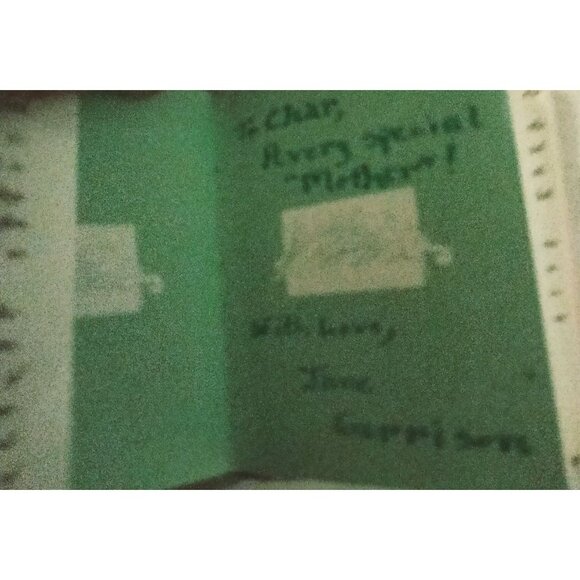 To Char,
A very special
"Mother"!
With Love,
Jane